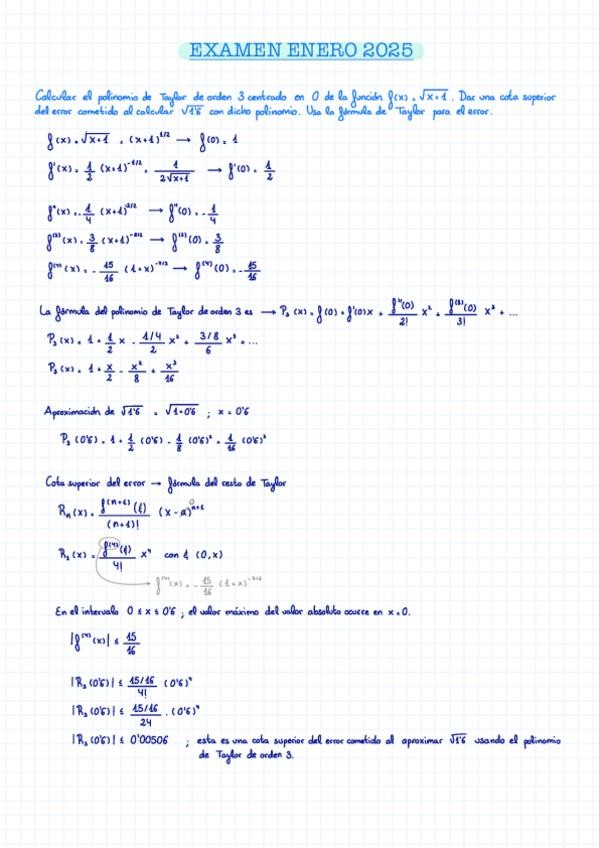 EXAMEN ENERO 2025
Calcular el polinomio de Taylor de orden 3 centrado en 0 de la función f(x) = √x+1. Dar una cota superior
del error cometido al calcular √1'6 con dicho polinomio. Usa la fórmula de Taylor para el error.
f(x) = √x+1 = (x+1)^1/2 → f(0) = 1
f'(x) = 1/2 (x+1)^-1/2 = 1/2√x+1 → f'(0) = 1/2
f''(x) = -1/4 (x+1)^-3/2 → f''(0) = -1/4
f^(3)(x) = 3/8 (x+1)^-5/2 → f^(3)(0) = 3/8
f^(4)(x) = -15/16 (1+x)^-7/2 → f^(4)(0) = -15/16
La fórmula del polinomio de Taylor de orden 3 es → P₃(x) = f(0) + f'(0)x + f''(0)/2! x² + f^(3)(0)/3! x³ + ...
P₃(x) = 1 + 1/2 x - 1/4/2 x² + 3/8/6 x³ + ...
P₃(x) = 1 + x/2 - x²/8 + x³/16
Aproximación de √1'6 = √1+0'6 ; x = 0'6
P₃(0'6) = 1 + 1/2 (0'6) - 1/8 (0'6)² + 1/16 (0'6)³
Cota superior del error → fórmula del resto de Taylor
Rₙ(x) = f^(n+1)(ξ)/(n+1)! (x-a)^n+1
0
R₃(x) = f^(4)(ξ)/4! x⁴ con ξ (0,x)
f^(4)(x) = -15/16 (1+x)^-7/2
En el intervalo 0 ≤ x ≤ 0'6 ; el valor máximo del valor absoluto ocurre en x=0.
|f^(4)(x)| ≤ 15/16
|R₃(0'6)| ≤ 15/16/4! (0'6)⁴
|R₃(0'6)| ≤ 15/16/24 · (0'6)⁴
|R₃(0'6)| ≤ 0'00506 ; esta es una cota superior del error cometido al aproximar √1'6 usando el polinomio
de Taylor de orden 3.